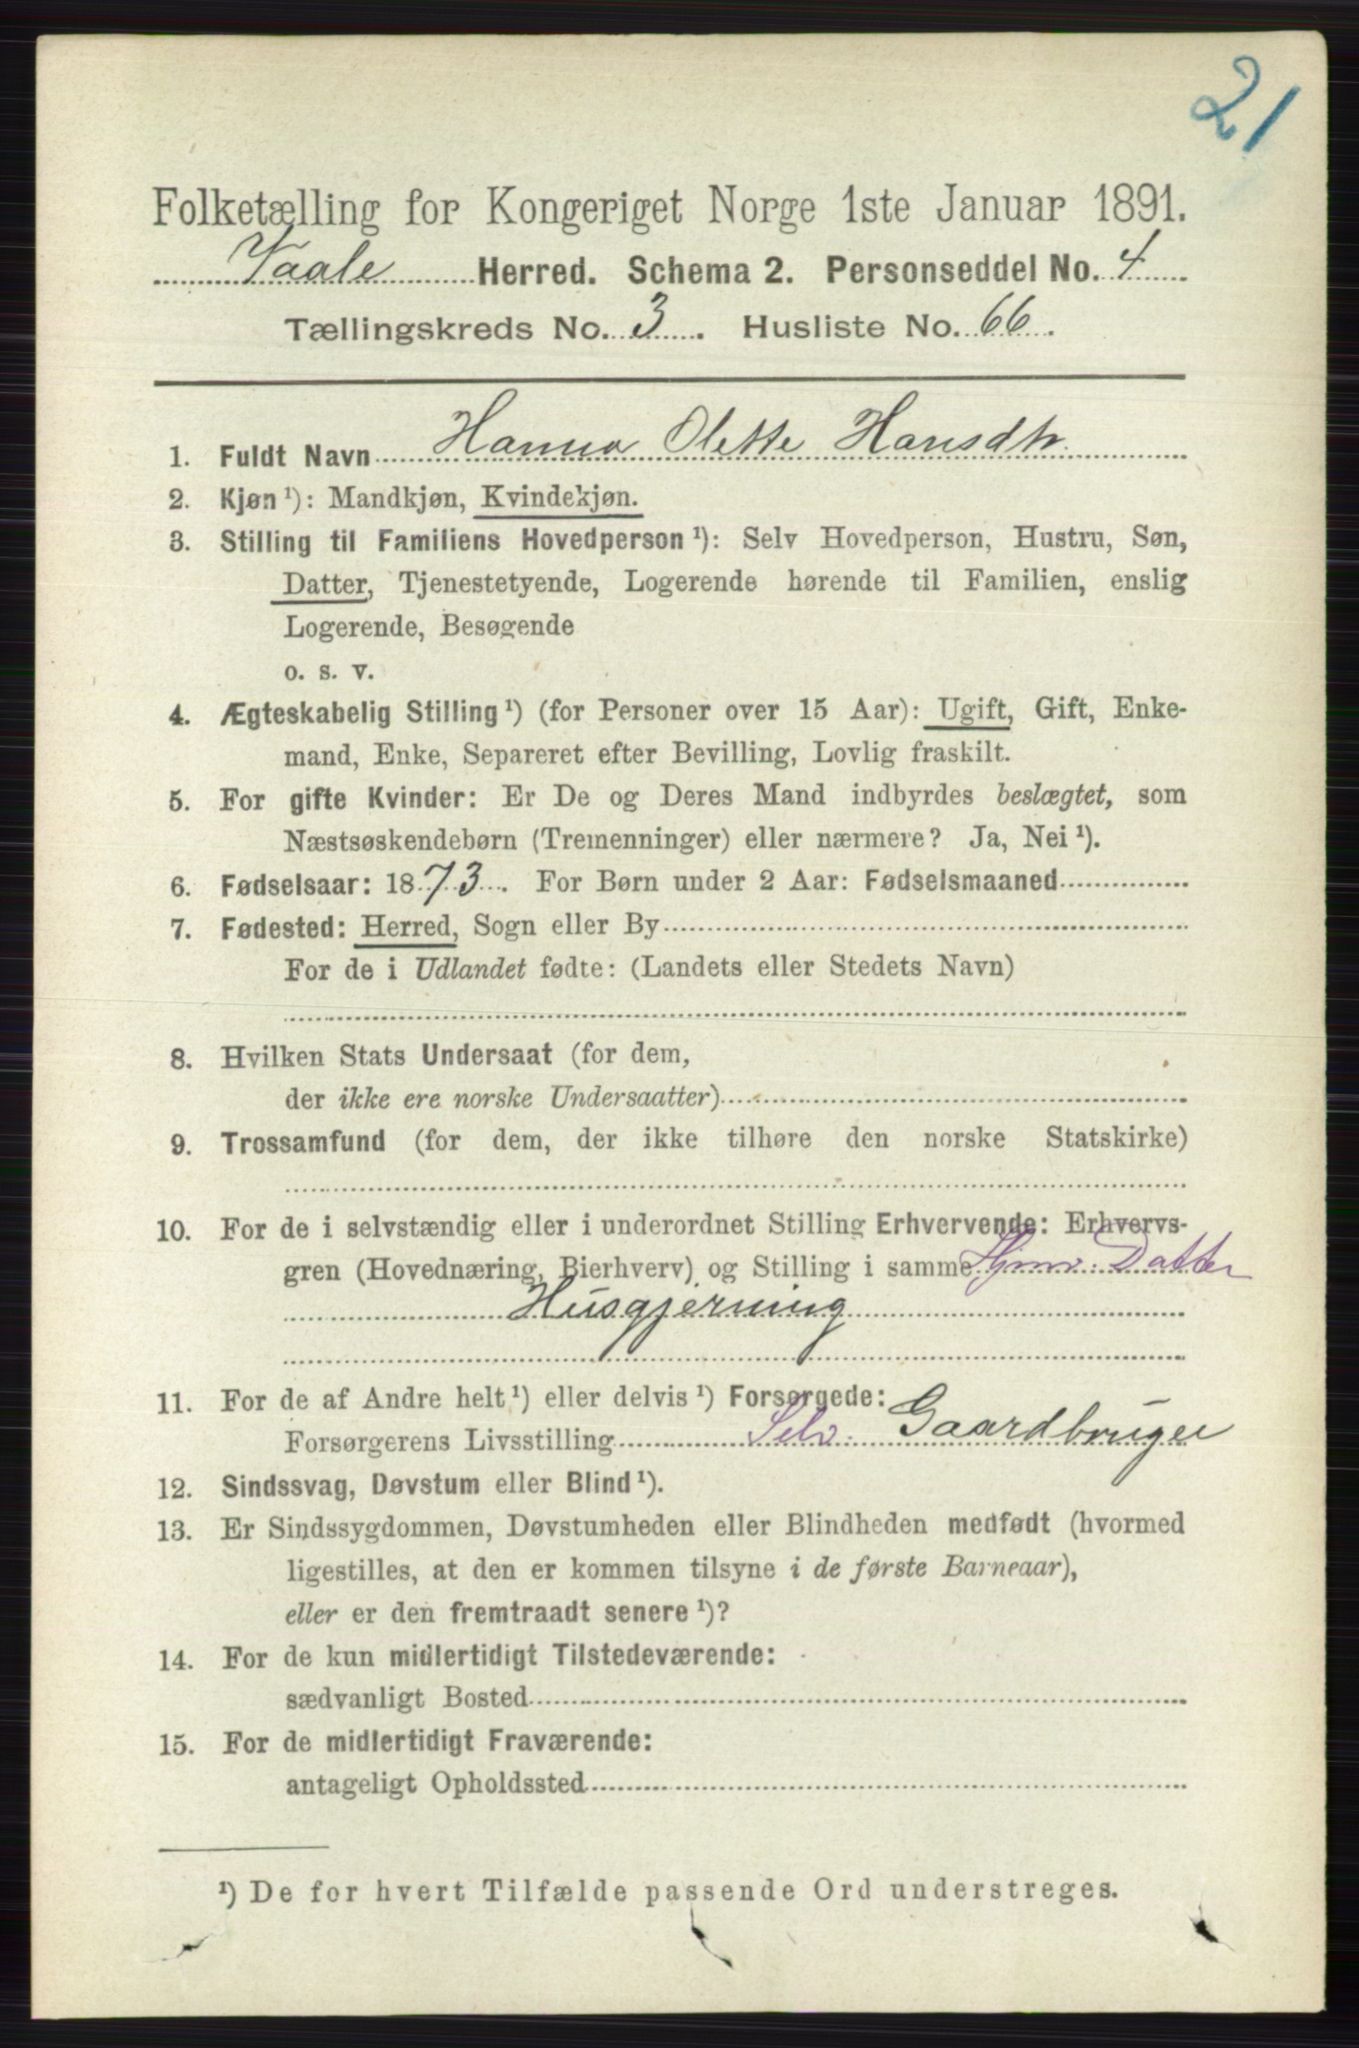 21
Folketælling for Kongeriget Norge 1ste Januar 1891.
Vaale Herred. Schema 2. Personseddel No. 4
Tællingskreds No. 3. Husliste No. 66.
1. Fuldt Navn Hanna Olette Hansdtr.
2. Kjøn ¹): Mandkjøn, Kvindekjøn.
3. Stilling til Familiens Hovedperson ¹): Selv Hovedperson, Hustru, Søn,
Datter, Tjenestetyende, Logerende hørende til Familien, enslig
Logerende, Besøgende
o. s. v.
4. Ægteskabelig Stilling ¹) (for Personer over 15 Aar): Ugift, Gift, Enke-
mand, Enke, Separeret efter Bevilling, Lovlig fraskilt.
5. For gifte Kvinder: Er De og Deres Mand indbyrdes beslægtet, som
Næstsøskendebørn (Tremenninger) eller nærmere? Ja, Nei ¹).
6. Fødselsaar: 1873. For Børn under 2 Aar: Fødselsmaaned
7. Fødested: Herred, Sogn eller By
For de i Udlandet fødte: (Landets eller Stedets Navn)
8. Hvilken Stats Undersaat (for dem,
der ikke ere norske Undersaatter)
9. Trossamfund (for dem, der ikke tilhøre den norske Statskirke)
10. For de i selvstændig eller i underordnet Stilling Erhvervende: Erhvervs-
gren (Hovednæring, Bierhverv) og Stilling i samme Hjmv. Datter
Husgjerning
11. For de af Andre helt ¹) eller delvis ¹) Forsørgede:
Forsørgerens Livsstilling Selv. Gaardbruger
12. Sindssvag, Døvstum eller Blind ¹).
13. Er Sindssygdommen, Døvstumheden eller Blindheden medfødt (hvormed
ligestilles, at den er kommen tilsyne i de første Barneaar),
eller er den fremtraadt senere ¹)?
14. For de kun midlertidigt Tilstedeværende:
sædvanligt Bosted
15. For de midlertidigt Fraværende:
antageligt Opholdssted
¹) De for hvert Tilfælde passende Ord understreges.